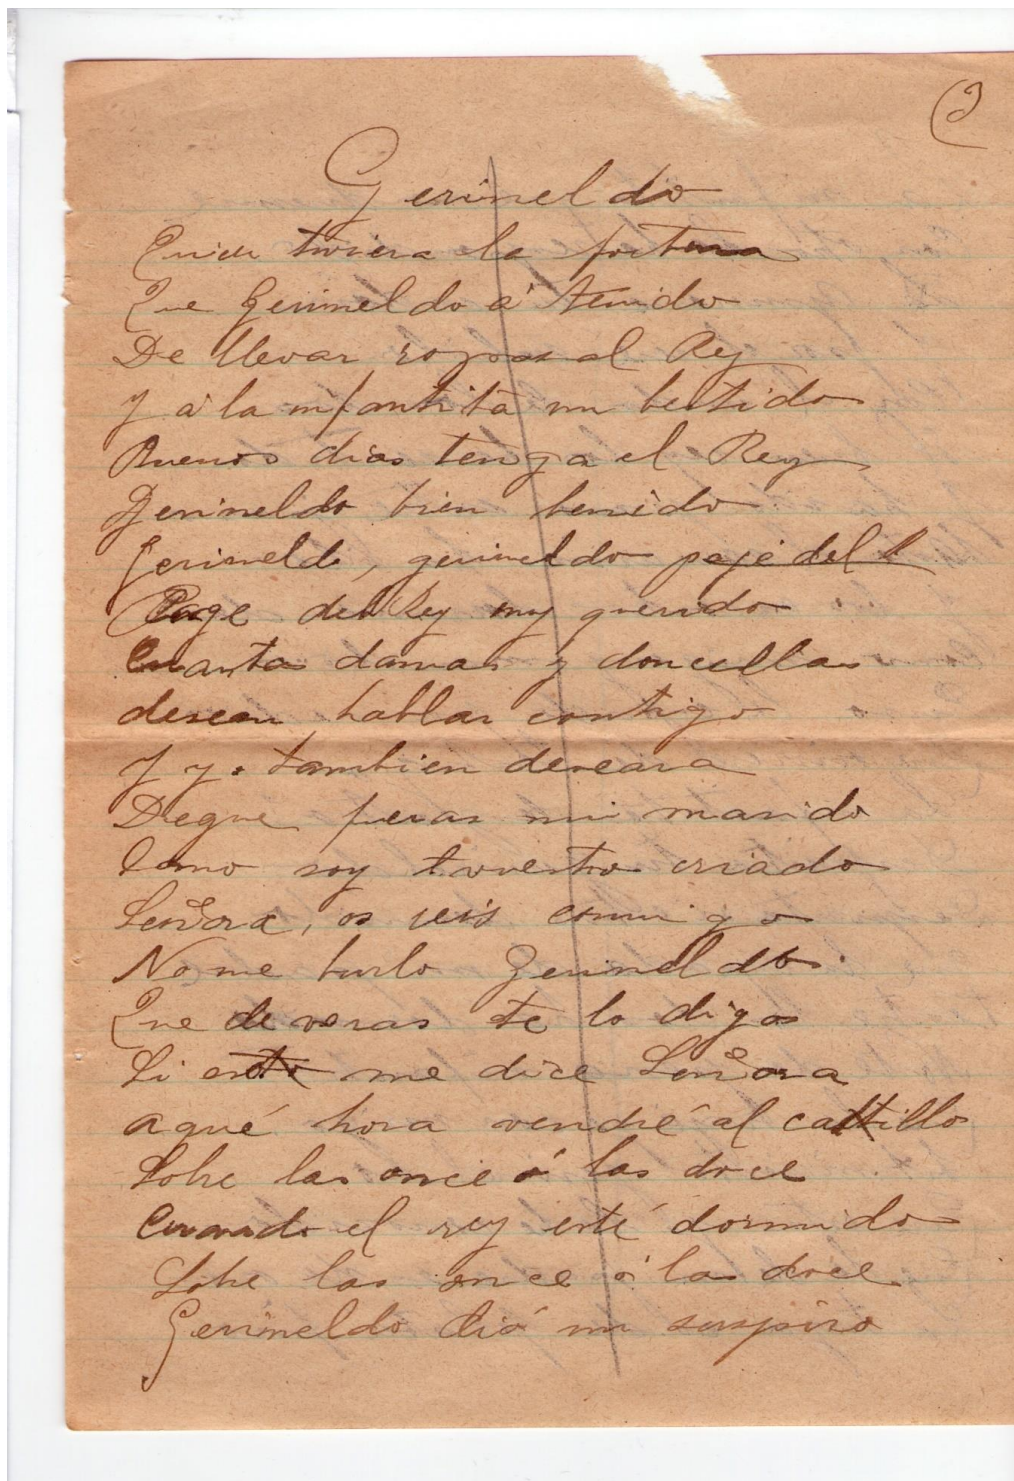 3
Gerineldo
Quien tuviera la fortuna
Que Gerineldo á tenido
De llevar ropas al Rey
Y á la infantita un bestido
Buenos dias tenga el Rey
Gerineldo bien benido
Gerineldo, gerineldo paje del R
Page del Rey my querido
Cuantas damas y doncellas
desean hablar contigo
Y yo tambien deseara
De que fueras mi marido
Como soy vuestro criado
Señora, os reis conmigo
No me burlo Gerineldo.
Que de veras te lo digo
Si esto me dice Señora
a qué hora vendré al castillo
Sobre las once ó las doce
Cuando el rey esté dormido
Sobre las once ó las doce
Gerineldo dió un suspiro